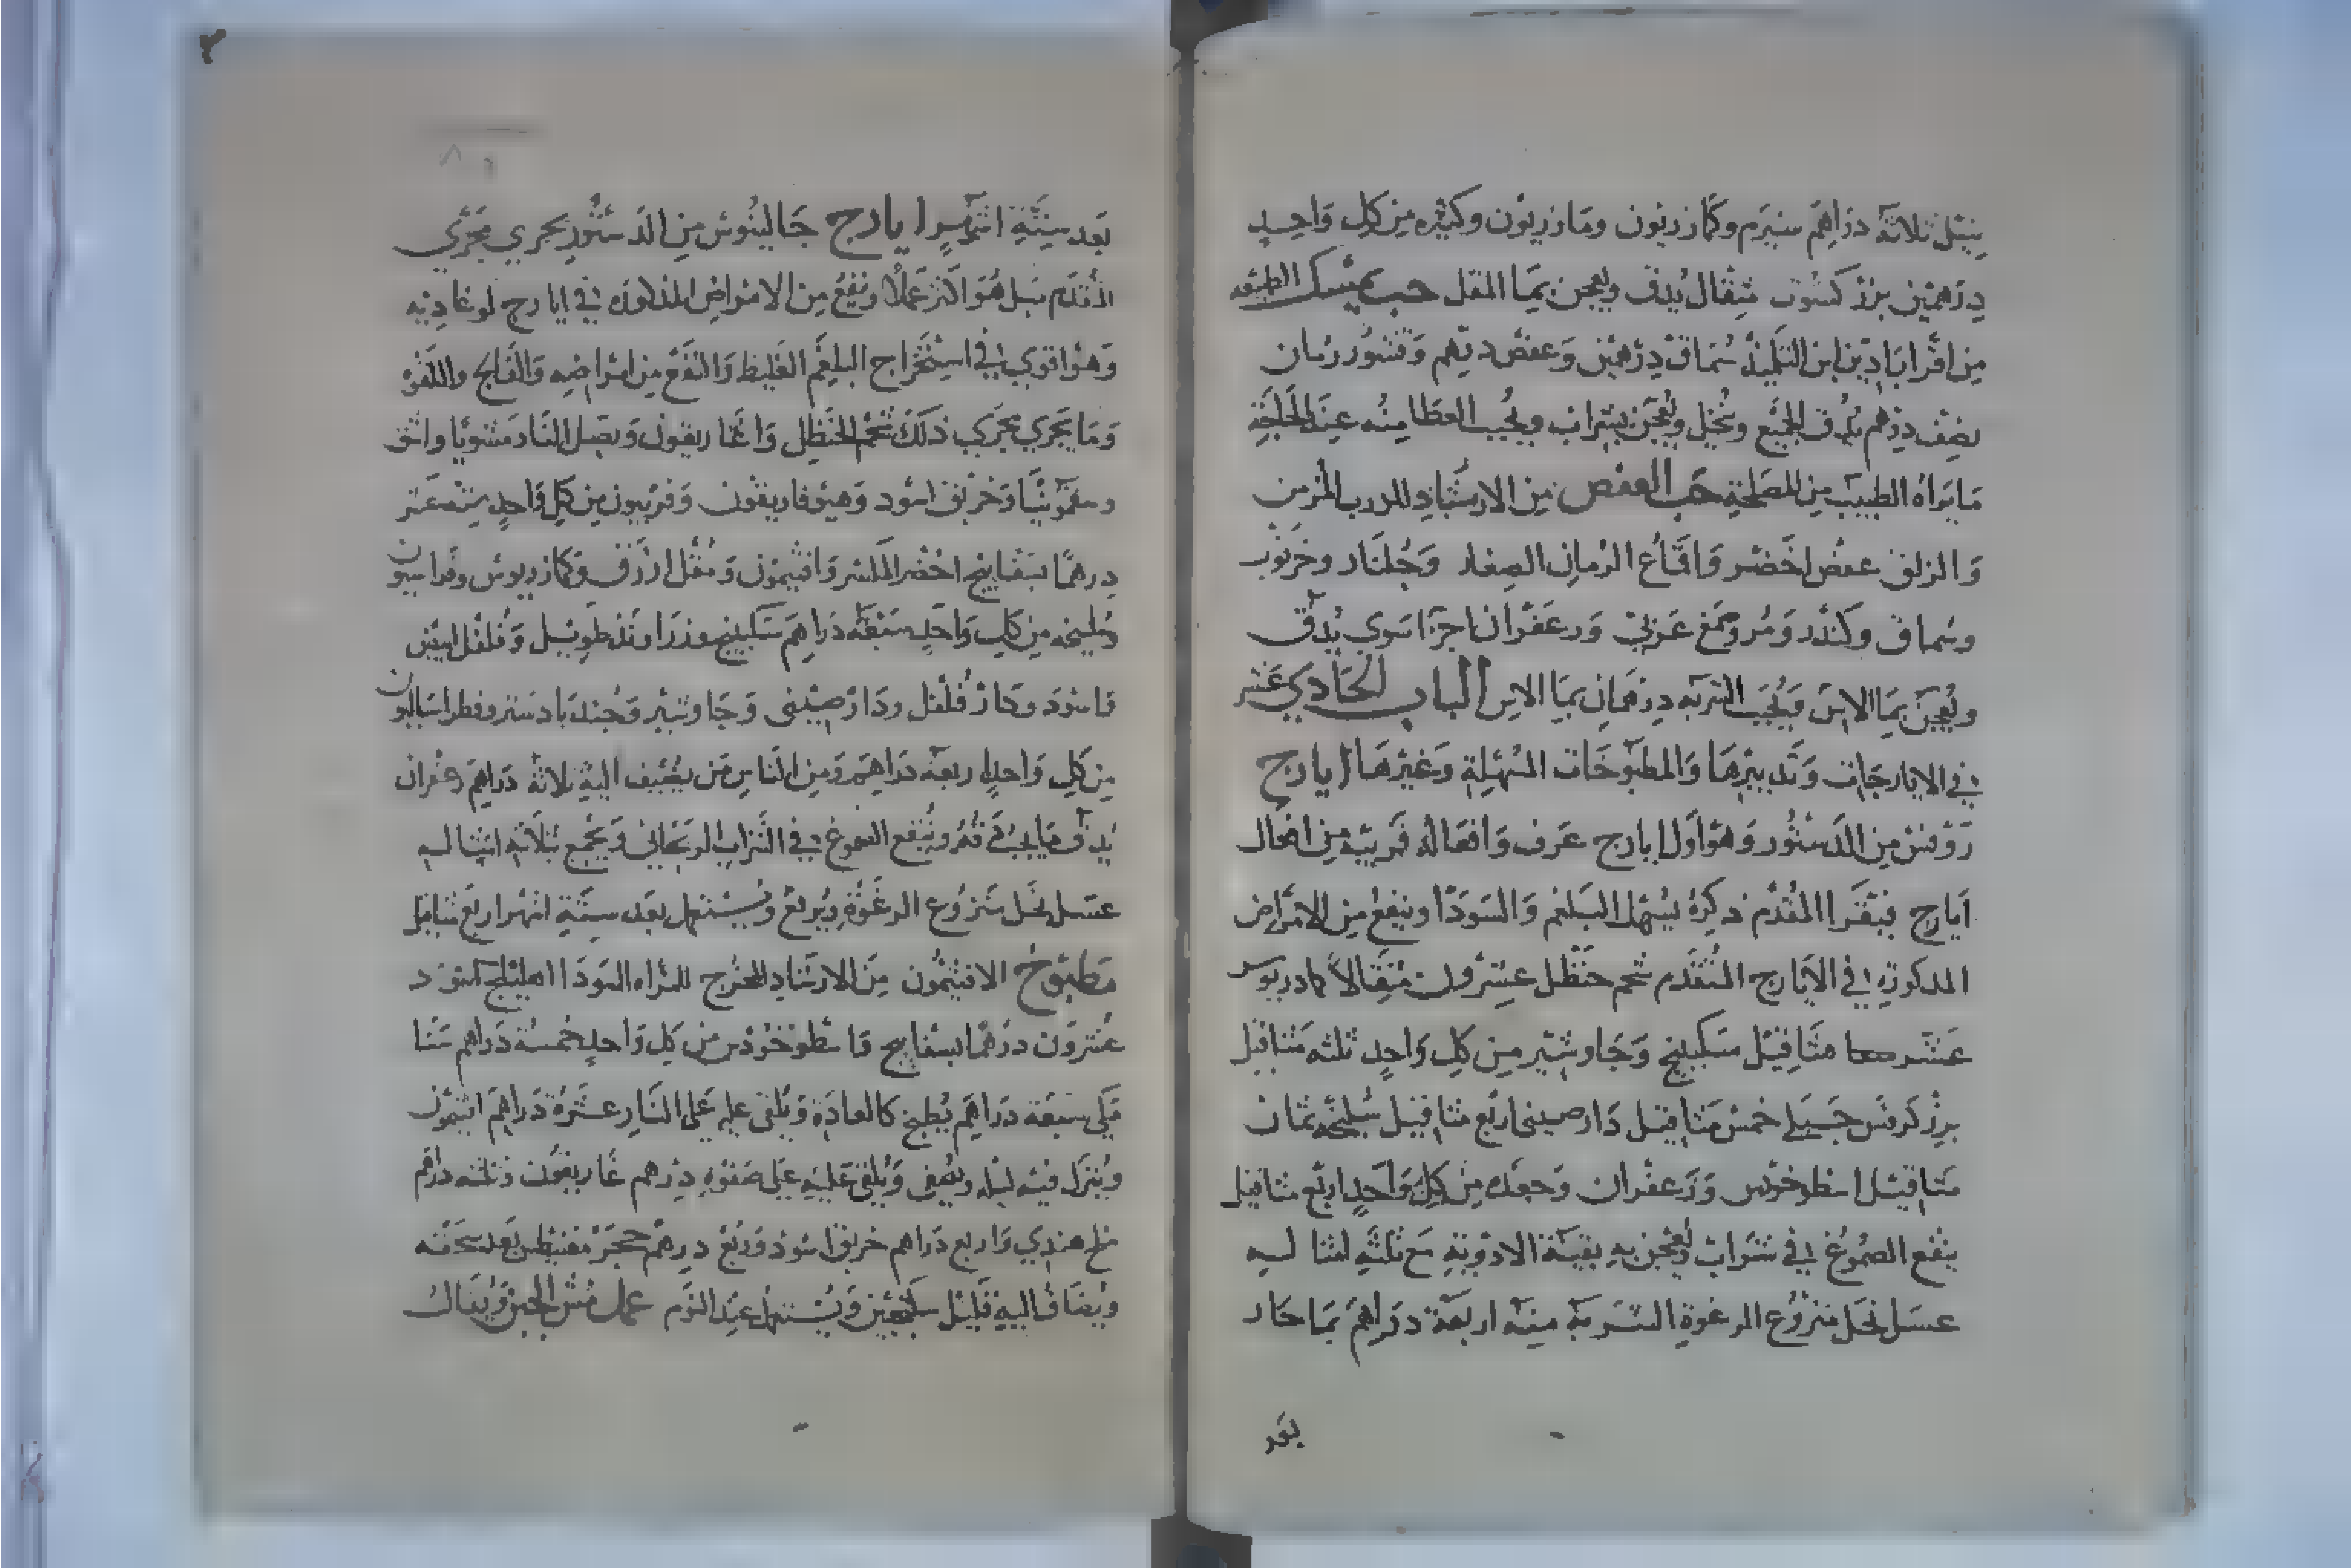 ثلاثة دراهم شبرم وكمازريون ومازريون وكثيره من كل واحد
درهمين بزر كشوث مثقال يدق ويعجن بما المقل حب يمسك الطبيعه
من اقراباذين ابن التلميذ سماق درهمين وعفص درهم وقشور رمان
نصف درهم يدق الجميع وينخل ويعجن بشراب ويحبب العطا منه عند الحاجة
ما يراه الطبيب من المصلحة حب العفص من الارشاد للدرب المزمن
والزلق عفص اخضر واقماع الرمان الصغار وجلنار وخرنوب
وسماق وكندر ومر وصمغ عربي وزعفران اجزا سوي يدق
ويعجن بما الاس ويحبب الشربه درهمان بما الاس الباب الحادي عشر
في الايارجات وتدبيرها والمطبوخات المسهلة وغيرها ايارج
روفس من الدستور وهو اول ايارج عرف وافعاله قريبه من افعال
ايارج فيقرا المقدم ذكره يسهل البلغم والسودا وينفع من الامراض
المذكورة في الايارج المتقدم شحم حنظل عشرون مثقالا كمادريوس
عشر مثاقيل سكبينج وجاوشير من كل واحد ثلثه مثاقيل
بزر كرفس جبلي خمس مثاقيل دارصيني اربع مثاقيل سليخه ثمان
مثاقيل اسطوخودس وزعفران وجعده من كل واحد اربع مثاقيل
ينقع الصموغ في شراب ويعجن به بقية الادوية مع ثلثه امثا له
عسل نحل منزوع الرغوة الشربه منه اربعة دراهم بما حار
بعد
بعد ستة اشهر ايارج جالينوس من الدستور يجري مجري
المقدم بل هو اكثر عملا وينفع من الامراض المذكوره في ايارج لوغاديه
وهو اقوي في استفراغ البلغم الغليظ وانفع من امراضه والفالج واللقوه
وما يجري مجري ذلك شحم الحنظل واغاريقون وبصل الفار مشويا واشق
وسقمونيا وخربق اسود وهيوفاريقون وفربيون من كل واحد ستة عشر
درهما بسفايج اخضر المكسر وافتيمون ومقل ازرق وكمازريوس وفراسيون
وسليخه من كل واحد سبعة دراهم سكبينج وزراوند طويل وفلفل ابيض
واسود ودار فلفل ودارصيني وجاوشير وجندبادستر وفطراساليون
من كل واحد اربعة دراهم ومن الناس من يضيف اليه ثلاثة دراهم زعفران
يدق ما يجب دقه وينقع الصموغ في الشراب الريحاني ويجمع بثلاثة امثاله
عسل نحل منزوع الرغوة ويرفع ويستعمل بعد ستة اشهر اربع مثاقيل
مطبوخ الافتيمون من الارشاد المخرج للمراه السودا اهليلج اسود
عشرون درهما بسفايج واسطوخودس من كل واحد خمسة دراهم سنا
مكي سبعة دراهم يطبخ كالعادة ويلقى عليه على النار عشرة دراهم افتيمون
ويترك فيه ليله ويصفى ويلقى عليه على صفوه درهم غاريقون وثلثه دراهم
ملح هندي واربع دراهم خربق اسود وربع درهم حجر مغنيطس بعد سحقه
ويضاف اليه قليل سكنجبين ويستعمل عند النوم عمل مش الجبن ويقال